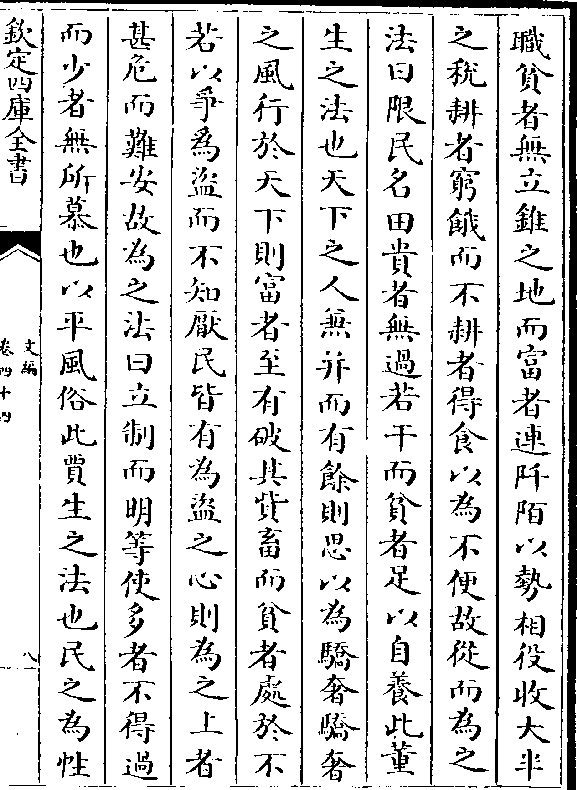 職貧者無立錐之地而富者連阡陌以勢相役收大半
之稅耕者窮餓而不耕者得食以為不便故從而為之
法曰限民名田貴者無過若干而貧者足以自養此董
生之法也天下之人兼并而有餘則思以為驕奢驕奢
之風行於天下則富者至有破其貲畜而貧者處於不
若以爭爲盜而不知厭民皆有為盜之心則為之上者
甚危而難安故為之法曰立制而明等使多者不得過
而少者無所慕也以平風俗此賈生之法也民之為性
欽定四庫全書
文編
卷四十四
八